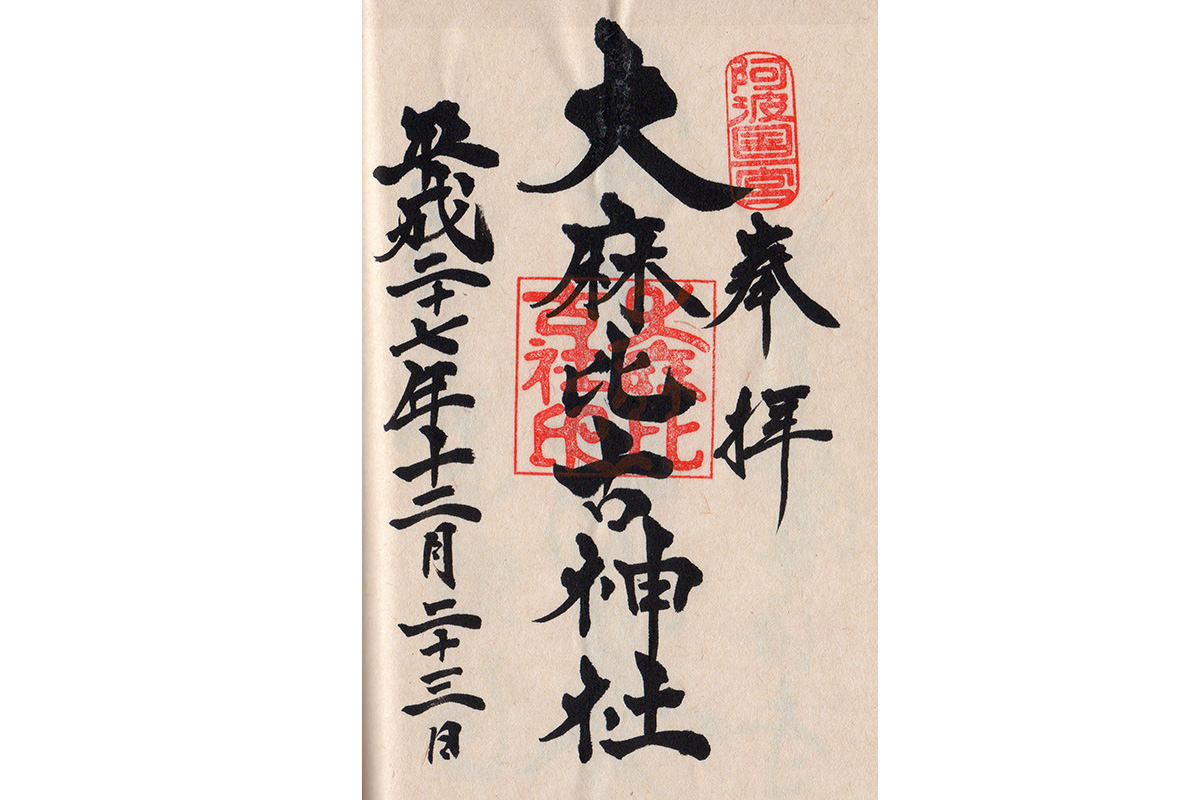 阿波国一宮
奉拝
大麻比古神社
大麻比古社印
平成二十七年十二月二十三日